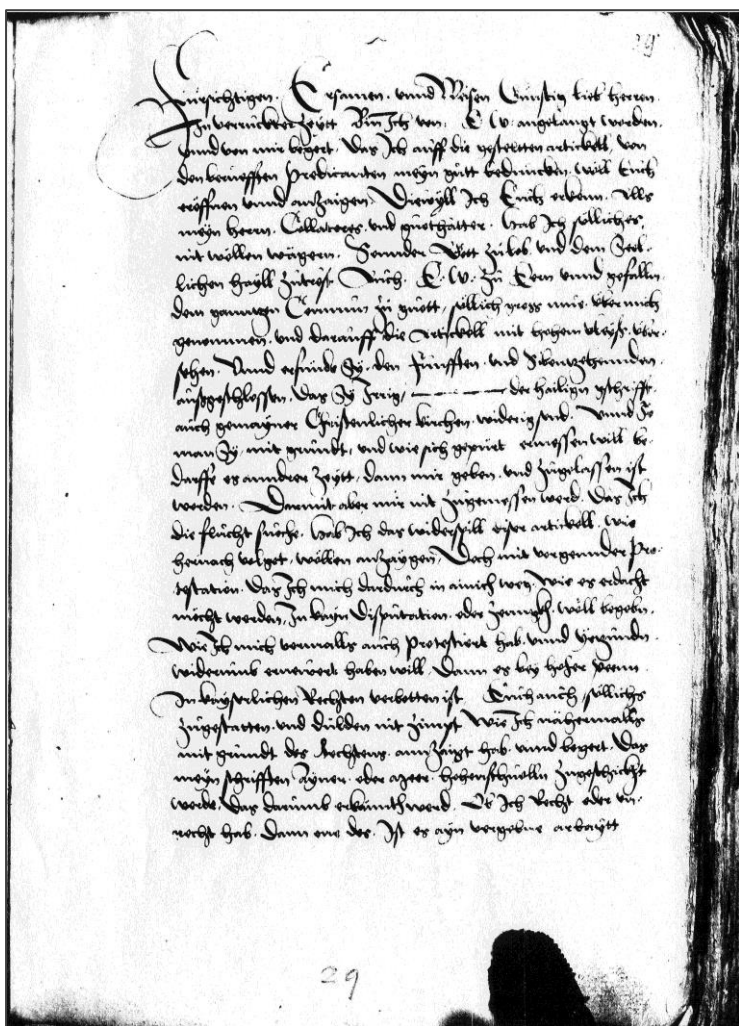 29
Fursichtigen. Ersamen. unnd Weisen Gunstig lieb herren.
In verruckter Zeytt Bin Ich von. E W. angelangt worden.
unnd von mir begert. Das Ich auff die gestellten artickell, von
den beruefften Predicanten meyn gutt beduncken. woll Euch
eroffnen unnd anzaigen, Diewyll Ich Euch erkenn. Alls
meyn herrn. Collatores. und guethatter. hab Ich solliches
nit wollen wagern. Sonnder Gott zu lob. und dem Seel-
lichen hayll zutrost. Auch. E. W. zu Eern unnd gefalln
dem ganntzen Commun zu guett, sollich gross mue. uber mich
genommen. und darauff die Artickell mit hohem vleyss. uber-
sehen. Unnd erfunde Sy. den funfften. und Sibentzehennden
aussgeschlossen. Das Sy Irrig, der hailign gschrifft
auch gemayner Christenlicher kirchen. widerig send. Unnd So
man Sy. mit grundt, und wie sich gepurt ermessen will be-
darffe es annderer Zeytt, dann mir geben. und zugelassen ist
worden. Darmit aber mir nit zugemessen werd. Das Ich
die flucht suche. hab Ich das widerspill ettlicher artickell. wie
hernach volget. wollen anzaygen, Doch mit vorgennder Pro-
testation. Das Ich mich dardurch in ainich weg. wie es erdacht
mocht werden, In kayn Disputation. oder woll begebn.
Wie Ich mich vormalls auch Protestiert hab. unnd yetzundn
widerumb ernewert haben will. Dann es bey hoher peenn.
In kayserlichen Rechten verbotten ist. Euch auch, sollichs
zugestatten. und dulden nit zimpt Wie Ich nahermalls
mit grundt des Rechtens. annzaigt hab. unnd begert. Das
meyn schrifften Ayner. oder hohenschuelln zugeschickht
werde. Das darumb erkannth werd. Ob Ich Recht oder un-
recht hab. Dann one das. Ist es ayn vergebne arbaytt
29